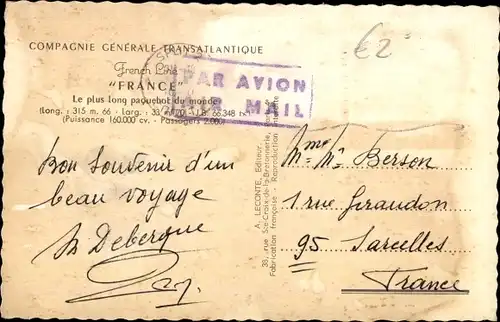 COMPAGNIE GÉNÉRALE TRANSATLANTIQUE
French Line
"FRANCE"
Le plus long paquebot du monde
(Long. : 315 m. 66 - Larg. : 33 m. - J.B. 66.348 tx.)
(Puissance 160.000 cv. - Passagers 2.000)
PAR AVION
MAIL
€2
Bon Souvenir d'un
beau voyage
Deberque
A. LECONTE, Editeur,
38, rue Ste-Croix-de-la-Bretonnerie,
Fabrication française - Reproduction interdite
Mme Mr Berson
1 rue Giraudon
95 Sarcelles
France